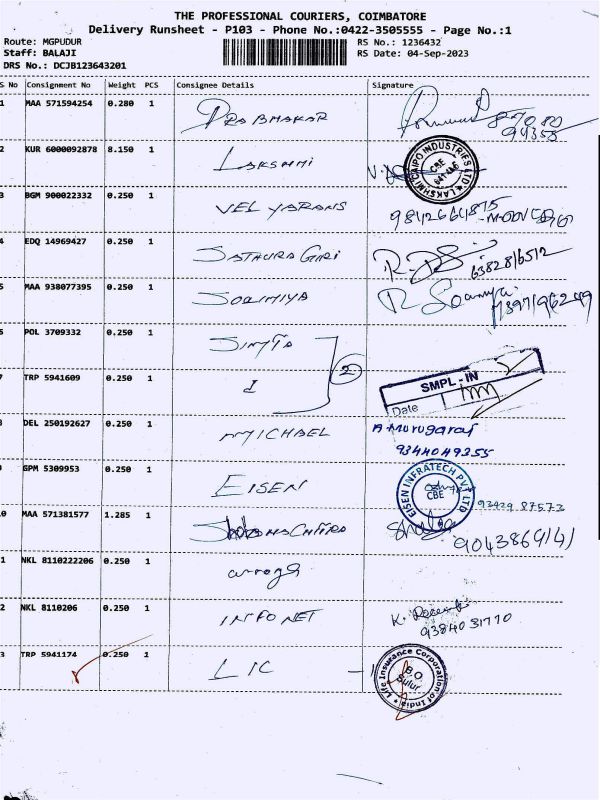 THE PROFESSIONAL COURIERS, COIMBATORE
Delivery Runsheet - P103 - Phone No.:0422-3505555 - Page No.:1
Route: MGPUDUR
RS No.: 1236432
Staff: BALAJI
RS Date: 04-Sep-2023
DRS No.: DCJB123643201
S No Consignment No Weight PCS Consignee Details Signature
1 MAA 571594254 0.280 1 PRABHAKAR
94355
2 KUR 6000092878 8.150 1 LAKSHMI
CBE
3 BGM 900022332 0.250 1 VEL YARANS
4 EDQ 14969427 0.250 1
5 MAA 938077395 0.250 1 SORIMIYA R. Soamya
6 POL 3709332 0.250 1
7 TRP 5941609 0.250 1 2 SMPL - IN
Date
8 DEL 250192627 0.250 1 MYCHAEL A. Murugaraj
9344049355
9 GPM 5309953 0.250 1 EISEN EISEN INFRATECH PVT LTD
CBE
93429 87573
10 MAA 571381577 1.285 1
11 NKL 8110222206 0.250 1
12 NKL 8110206 0.250 1 INFONET K.
9384031770
13 TRP 5941174 0.250 1 LIC - 1 Life Insurance Corporation of India
B.O.
Sulur